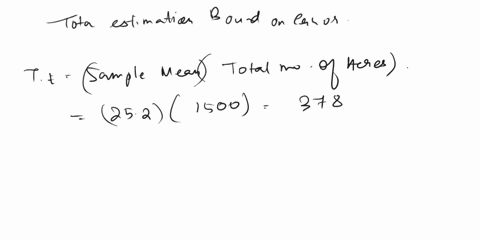 Total estimation Bound on Error.
T.t = (Sample Mean) Total no. of Acres).
= (25.2) ( 1500) = 378